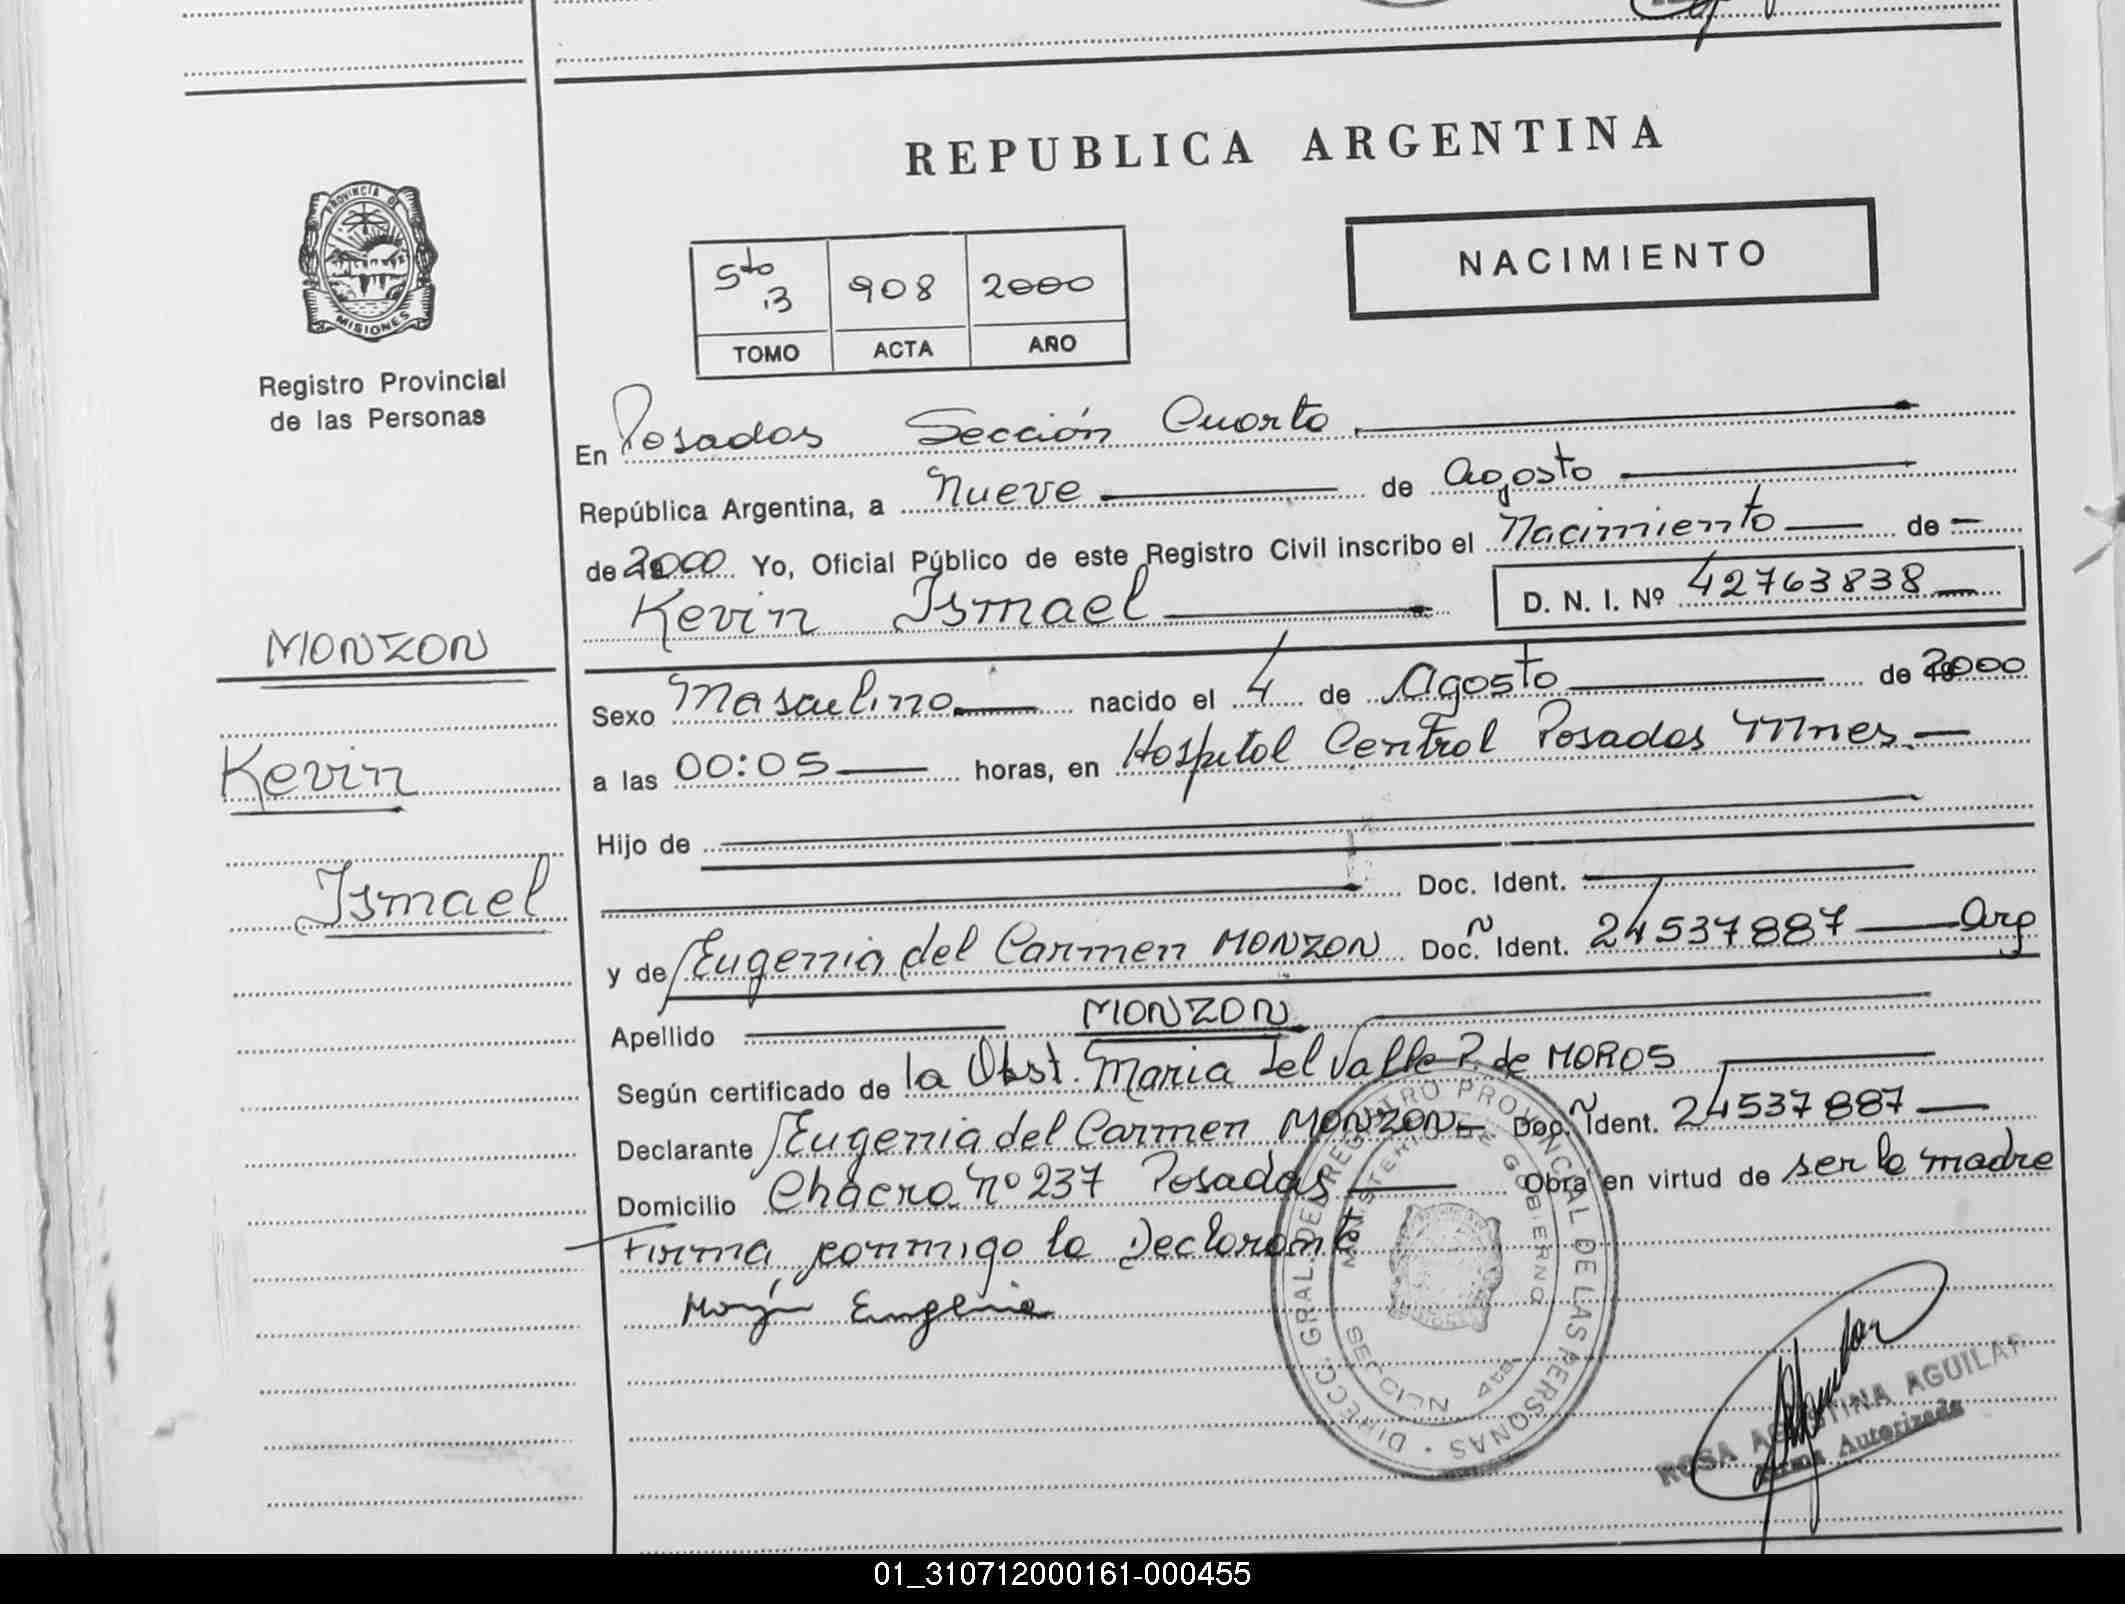 REPUBLICA ARGENTINA
PROVINCIA DE
MISIONES
Registro Provincial
de las Personas
NACIMIENTO
5to 908 2000
13
TOMO ACTA AÑO
En Posadas Sección Cuarta
República Argentina, a Nueve de Agosto
de 2000 Yo, Oficial Público de este Registro Civil inscribo el Nacimiento de
Kevin Ismael D. N. I. Nº 42763838
MONZON
Kevin
Ismael
Sexo Masculino nacido el 4 de Agosto de 2000
a las 00:05 horas, en Hospital Central Posadas Mnes.
Hijo de
Doc. Ident.
y de Eugenia del Carmen MONZON Doc. Ñ Ident. 24537887 Arg
Apellido MONZON
Según certificado de la Obst. Maria del Valle P. de MOROS
Declarante Eugenia del Carmen MONZON Doc. Ñ Ident. 24537887
Domicilio Chacra Nº 237 Posadas Obra en virtud de ser la madre
Firma conmigo la Declarante
Eugenia
DIRECC. GRAL. DEL REGISTRO PROVINCIAL DE LAS PERSONAS
MINISTERIO DE GOBIERNO
SECCION 4ta
ROSA AGUSTINA AGUILAR
Firma Autorizada
01_310712000161-000455